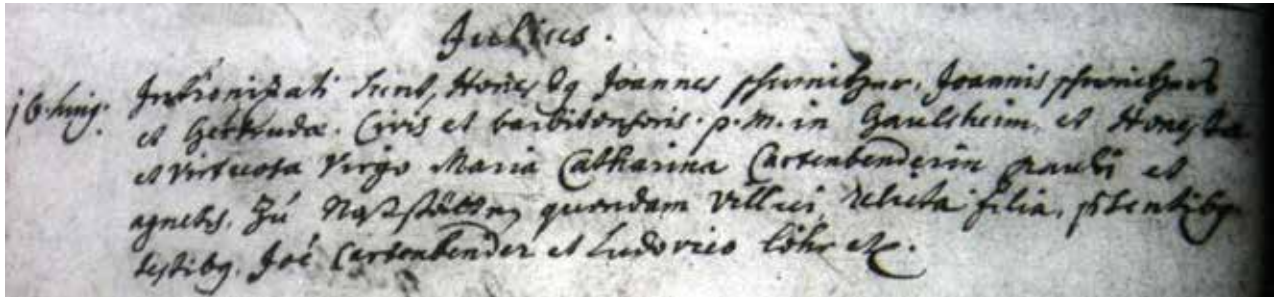 Julius.
16 huius. Inthronizati sunt, Honestus Joannes Schernitzer, Joannis Schernitzers
et Gertrudæ. Civis et barbitonsoris. p. M. in Gaulsheim, et Honesta
et virtuosa Virgo Maria Catharina Cartenbenderin Pauli et
agnetis, Zu Nastätten quondam villici relicta filia, psentibq
testibq. Joē Cartenbender et Ludovico Löhr etc.